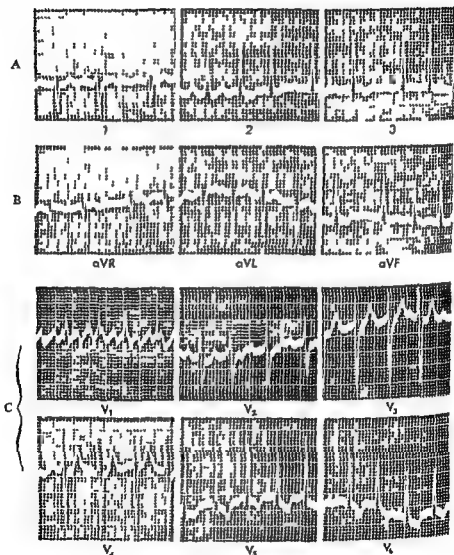 A
1 2 3
B
aVR aVL aVF
C
V₁ V₂ V₃
V₅ V₆